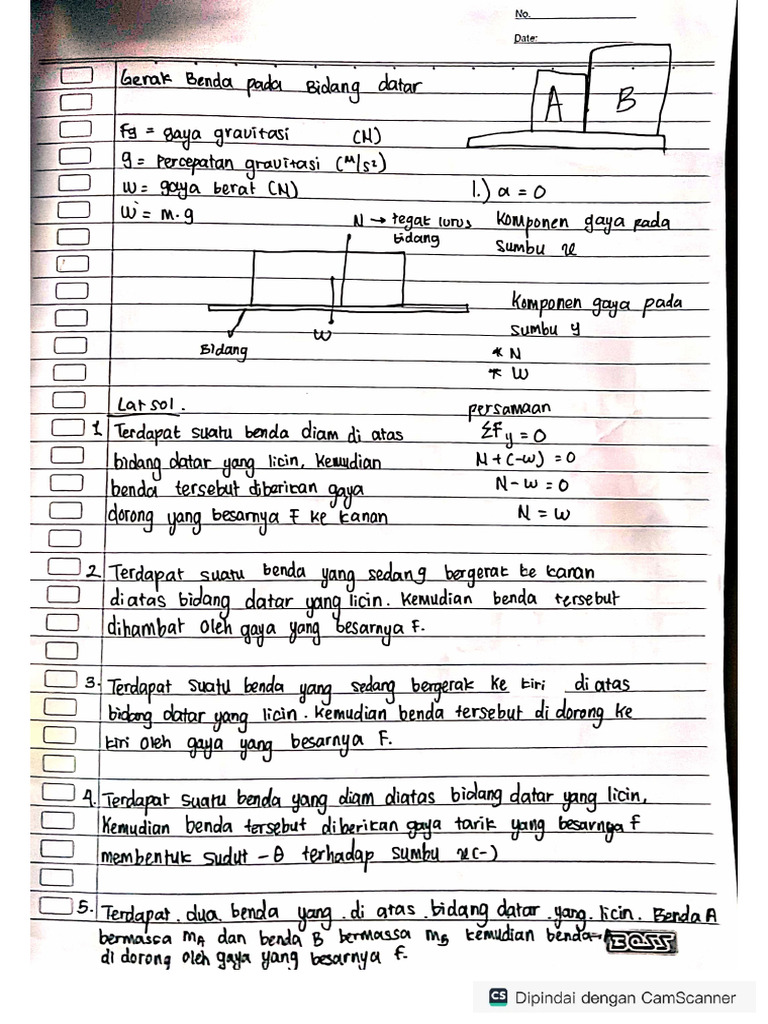 No.
Date:
Gerak Benda pada Bidang datar
A
B
Fg = gaya gravitasi (N)
g = Percepatan gravitasi (m/s²)
w = gaya berat (N)
w = m.g
N → tegak lurus bidang
W
Bidang
1.) a = 0
Komponen gaya pada
sumbu x
Komponen gaya pada
sumbu y
* N
* W
persamaan
ΣFy = 0
N + (-w) = 0
N - w = 0
N = w
Lat sol.
1 Terdapat suatu benda diam di atas
bidang datar yang licin, kemudian
benda tersebut diberikan gaya
dorong yang besarnya F ke kanan
2 Terdapat suatu benda yang sedang bergerak ke kanan
diatas bidang datar yang licin. Kemudian benda tersebut
dihambat oleh gaya yang besarnya F.
3. Terdapat suatu benda yang sedang bergerak ke kiri di atas
bidang datar yang licin. kemudian benda tersebut di dorong ke
kiri oleh gaya yang besarnya F.
4. Terdapat suatu benda yang diam diatas bidang datar yang licin,
Kemudian benda tersebut diberikan gaya tarik yang besarnya f
membentuk sudut - θ terhadap sumbu x(-)
5. Terdapat dua benda yang di atas bidang datar yang licin. Benda A
bermassa mA dan benda B bermassa mB kemudian benda A
di dorong oleh gaya yang besarnya f.
BOSS
CS Dipindai dengan CamScanner